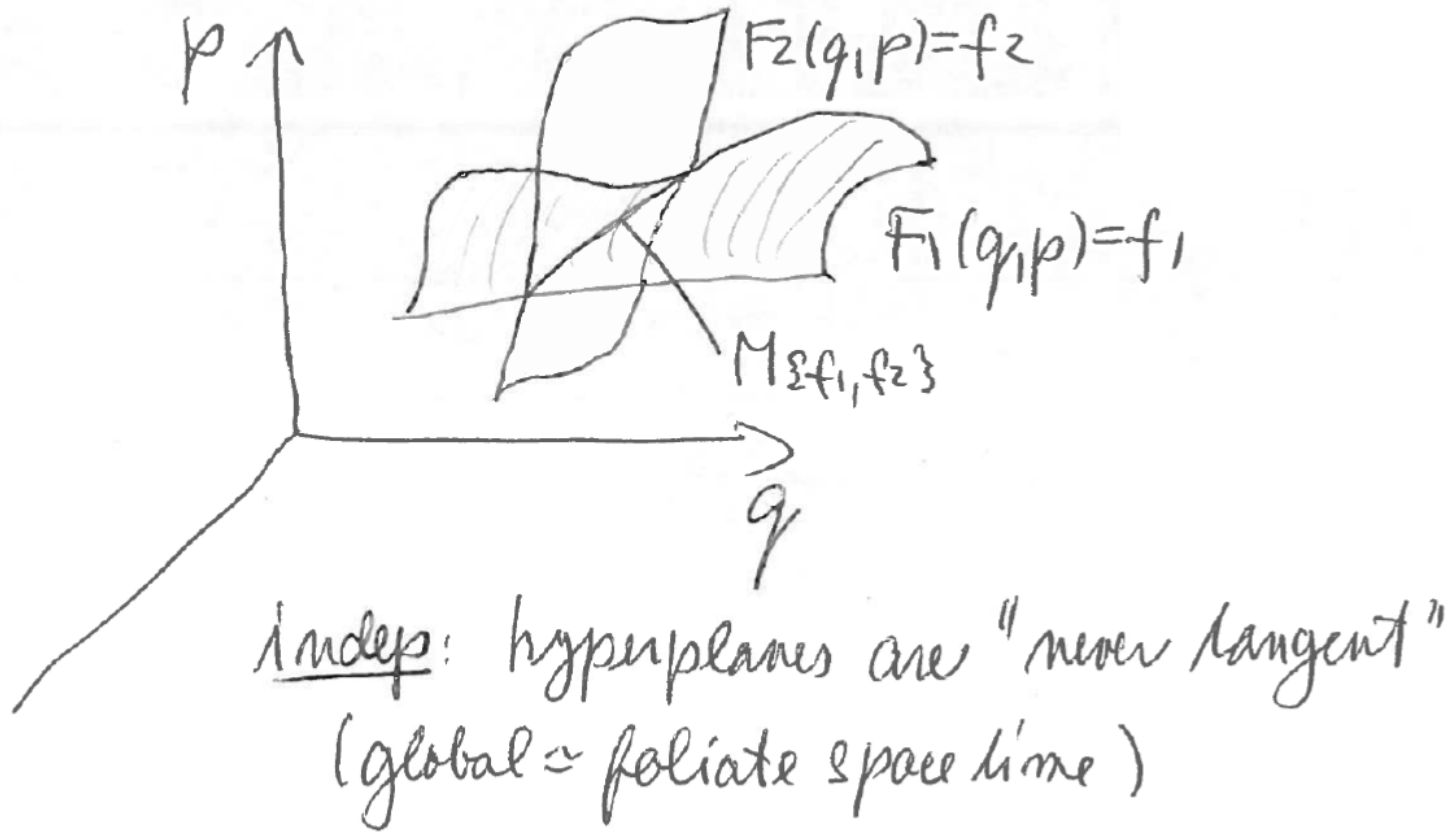 p
F2(q,p)=f2
F1(q,p)=f1
M{f1,f2}
q
indep: hyperplanes are "never tangent"
(global ≃ foliate space time)